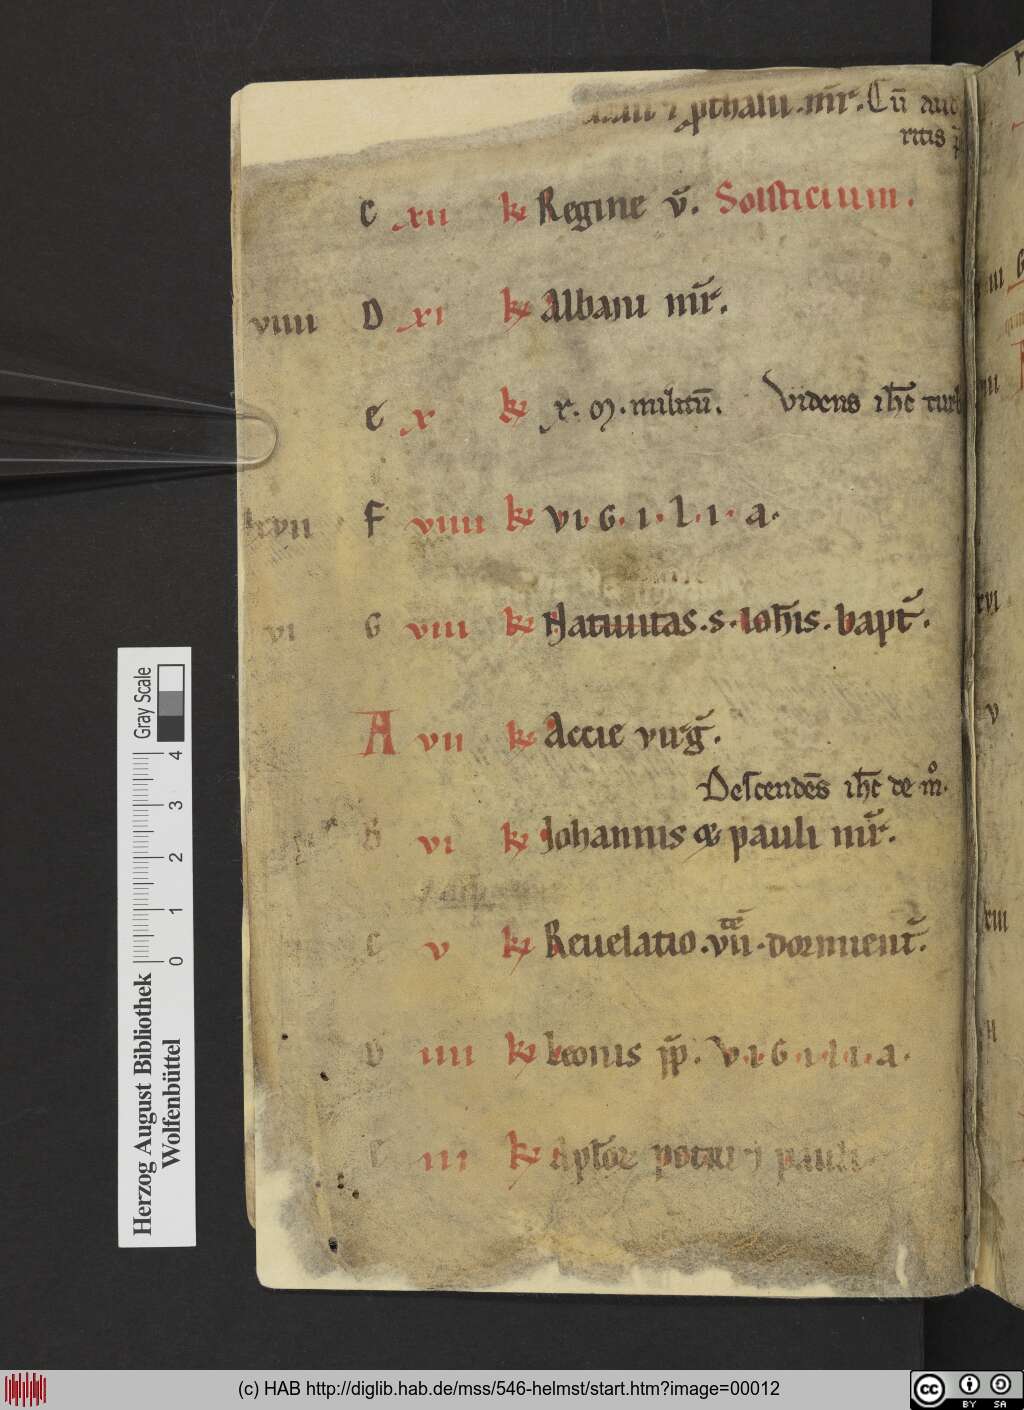 m̄r. Cū aud
ritis
C xii kł Regine v̄. Solsticium.
viiii D xi kł Albani m̄r.
E x kł x. M. militū. Videns ih̄c turb
xvii F viiii kł V.I.G.I.L.I.A.
vi G viii kł Natiuitas.s.Ioh̄is.bapt̄.
A vii kł Accie virḡ.
Descendēs ih̄c de m̊.
B vi kł Iohannis & pauli m̄r.
C v kł Reuelatio.vii tē.dormient̄.
D iiii kł Leonis p̄p. V.I.G.I.L.I.A.
iii kł Apl̄oꝝ petri ⁊ pauli
xvi
v
xiii
0 1 2 3 4
Gray Scale
Herzog August Bibliothek
Wolfenbüttel
(c) HAB http://diglib.hab.de/mss/546-helmst/start.htm?image=00012
cc BY SA